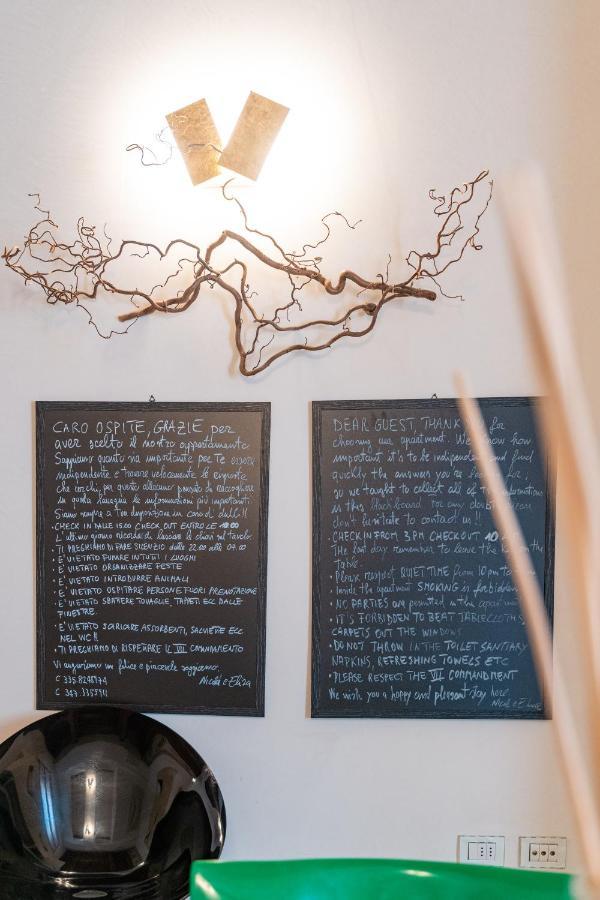 CARO OSPITE, GRAZIE per
aver scelto il nostro appartamento
Sappiamo quanto sia importante per Te essere
indipendente e trovare velocemente le risposte
che cerchi, per questo abbiamo pensato di raccogliere
in questa lavagna le informazioni più importanti.
Siamo sempre a Tua disposizione in caso di dubbi!!
• CHECK IN DALLE 15.00 CHECK OUT ENTRO LE 10:00
L'ultimo giorno ricordati di lasciare le chiavi sul tavolo.
• TI PREGHIAMO DI FARE SILENZIO dalle 22.00 alle 07.00
• E' VIETATO FUMARE IN TUTTI I LUOGHI
• E' VIETATO ORGANIZZARE FESTE
• E' VIETATO INTRODURRE ANIMALI
• E' VIETATO OSPITARE PERSONE FUORI PRENOTAZIONE
• E' VIETATO SBATTERE TOVAGLIE, TAPPETI ECC DALLE
FINESTRE.
• E' VIETATO SCARICARE ASSORBENTI, SALVIETTE ECC
NEL WC!!
• TI PREGHIAMO DI RISPETTARE IL VII COMANDAMENTO
Vi auguriamo un felice e piacevole soggiorno.
Nicola e Elisa
DEAR GUEST, THANK for
choosing our apartment. We know how
important it is to be independent and find
quickly the answers you're for,
so we taught to collect all of the informations
in this blackboard. For any doubt
don't hesitate to contact us!!
• CHECK IN FROM 3PM CHECKOUT 10
The last day remember to leave the on the
table.
• Please respect QUIET TIME from 10 pm to
Inside the apartment SMOKING is forbidden
• NO PARTIES are permitted in the
• IT'S FORBIDDEN TO BEAT TABLECLOTHS,
CARPETS OUT THE WINDOWS
• DO NOT THROW IN THE TOILET SANITARY
NAPKINS, REFRESHING TOWELS ETC
• PLEASE RESPECT THE VII COMMANDMENT
We wish you a happy and pleasant stay here.